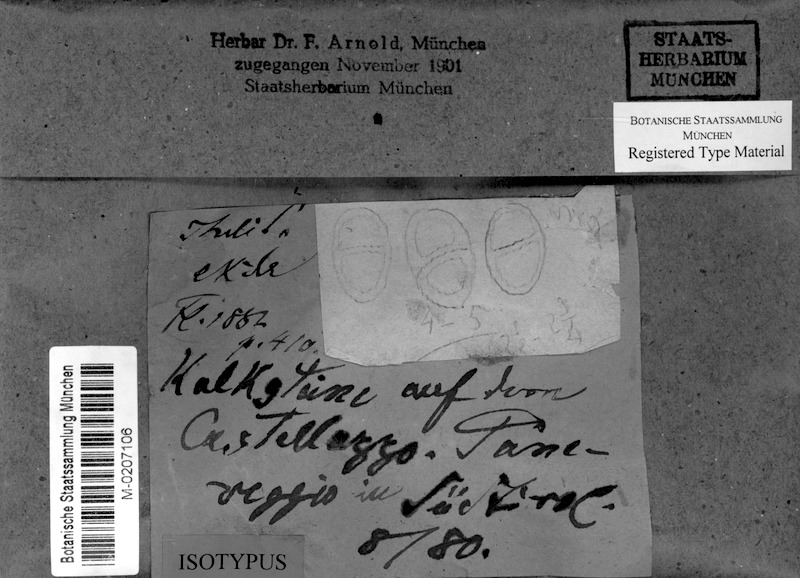 Herbar Dr. F. Arnold, München
zugegangen November 1901
Staatsherbarium München
STAATS-
HERBARIUM
MÜNCHEN
BOTANISCHE STAATSSAMMLUNG
MÜNCHEN
Registered Type Material
exile
Fl. 1882
p. 410.
auf dem
Castellazzo. Pane-
veggio in Südtirol.
8/80.
ISOTYPUS
Botanische Staatssammlung München
M-0207106